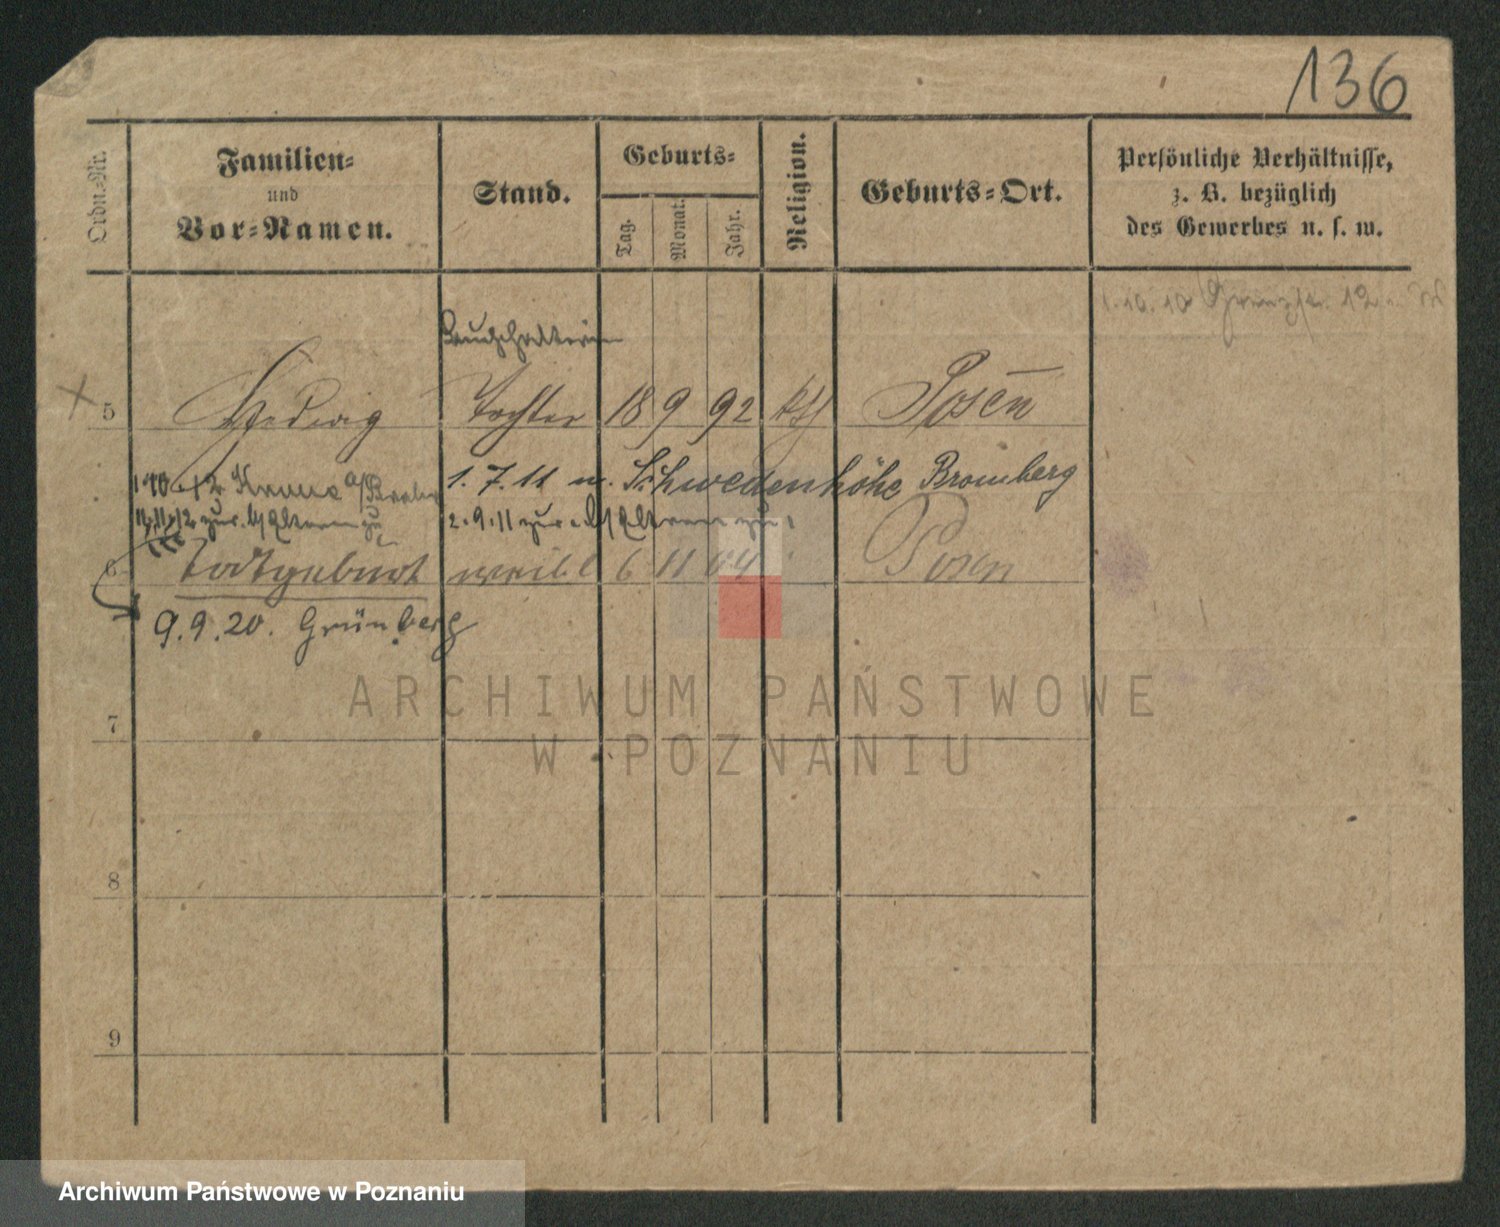 136
Ordn.-Nr.
Familien-
und
Vor-Namen.
Stand.
Geburts-
Tag.
Monat.
Jahr.
Religion.
Geburts-Ort.
Persönliche Verhältnisse,
z. B. bezüglich
des Gewerbes u. s. w.
1.10.10 12
Buchhalterin
5 Hedwig Tochter 18 9 92 kth Posen
1. 7. 11 n. Schwedenhöhe Bromberg
11.11.12 zur. b/ Eltern zu
2. 9. 11 zur. b/ Eltern zu
6 Todtgeburt weibl 6 11 04 Posen
9. 9. 20. Grünberg
7
8
9
ARCHIWUM PAŃSTWOWE
W POZNANIU
Archiwum Państwowe w Poznaniu